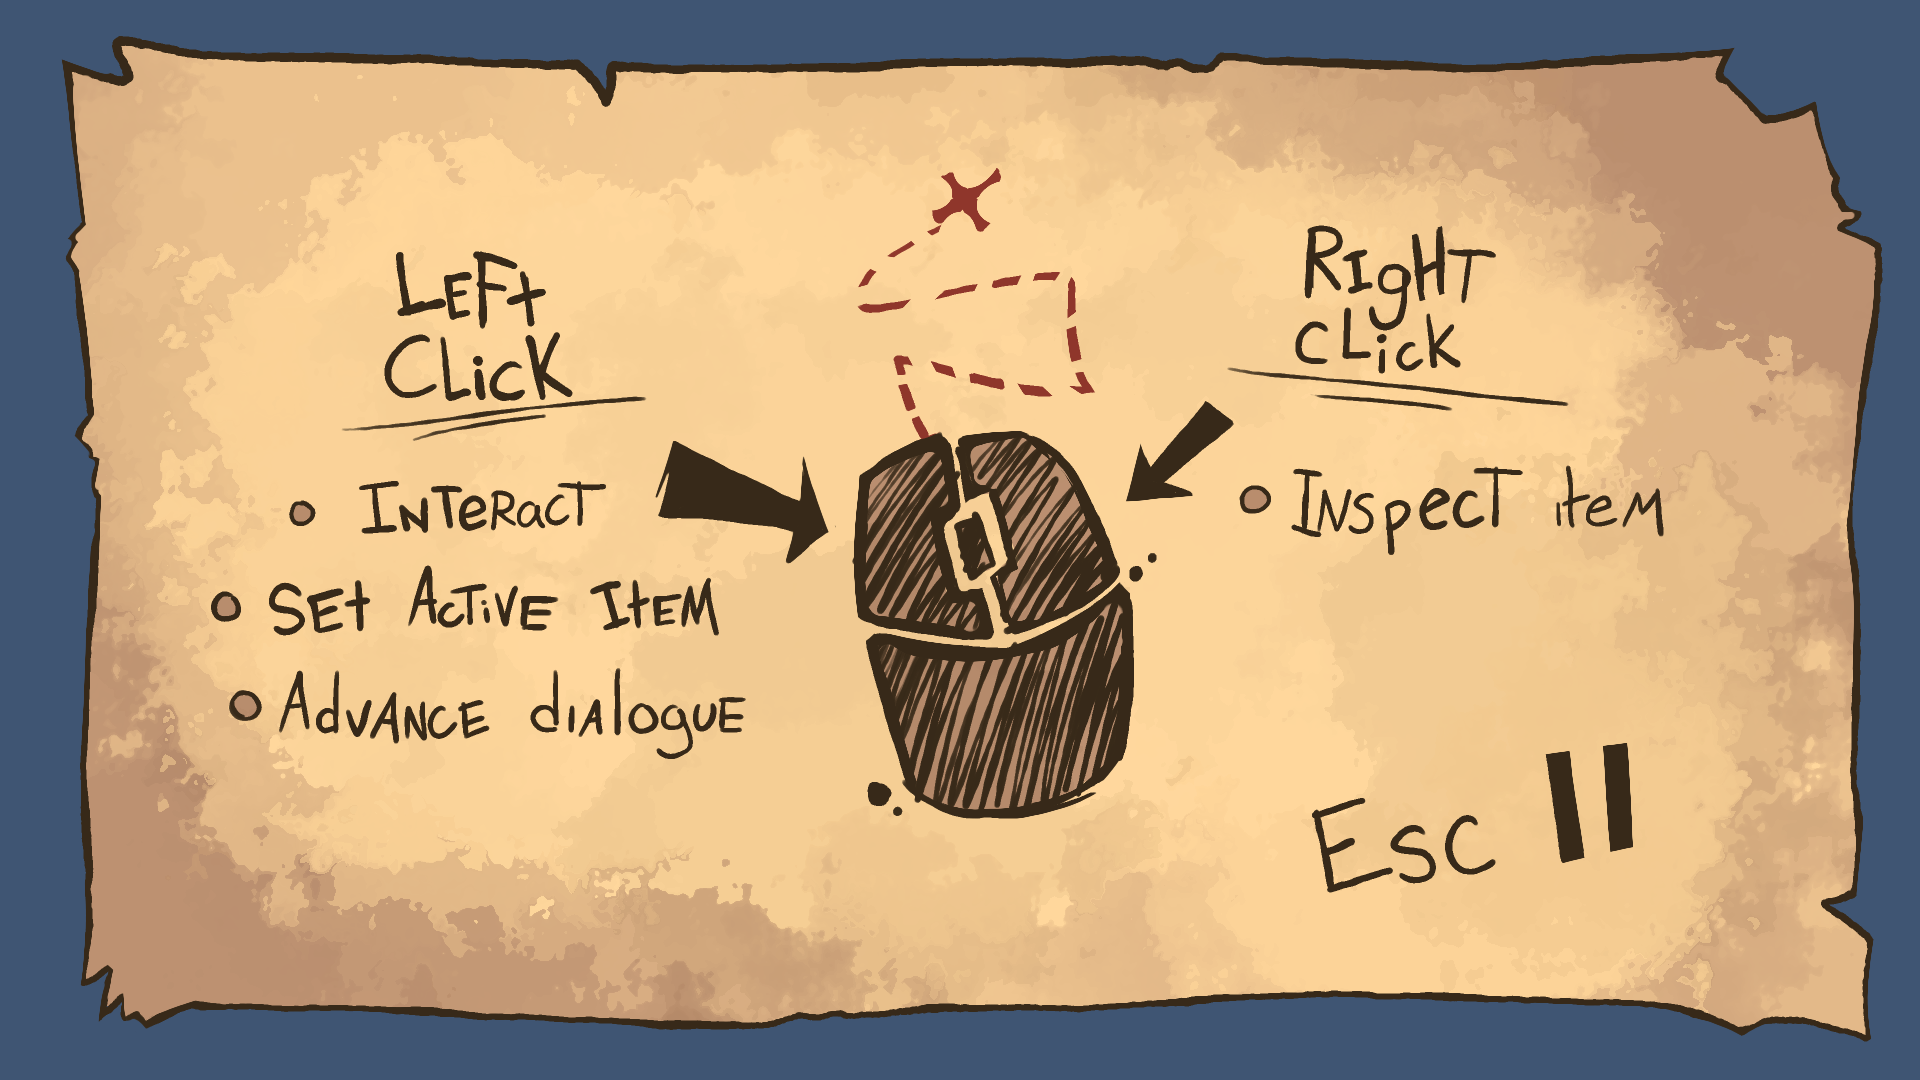 Left
Click
Interact
Set Active Item
Advance dialogue
Right
Click
Inspect item
Esc